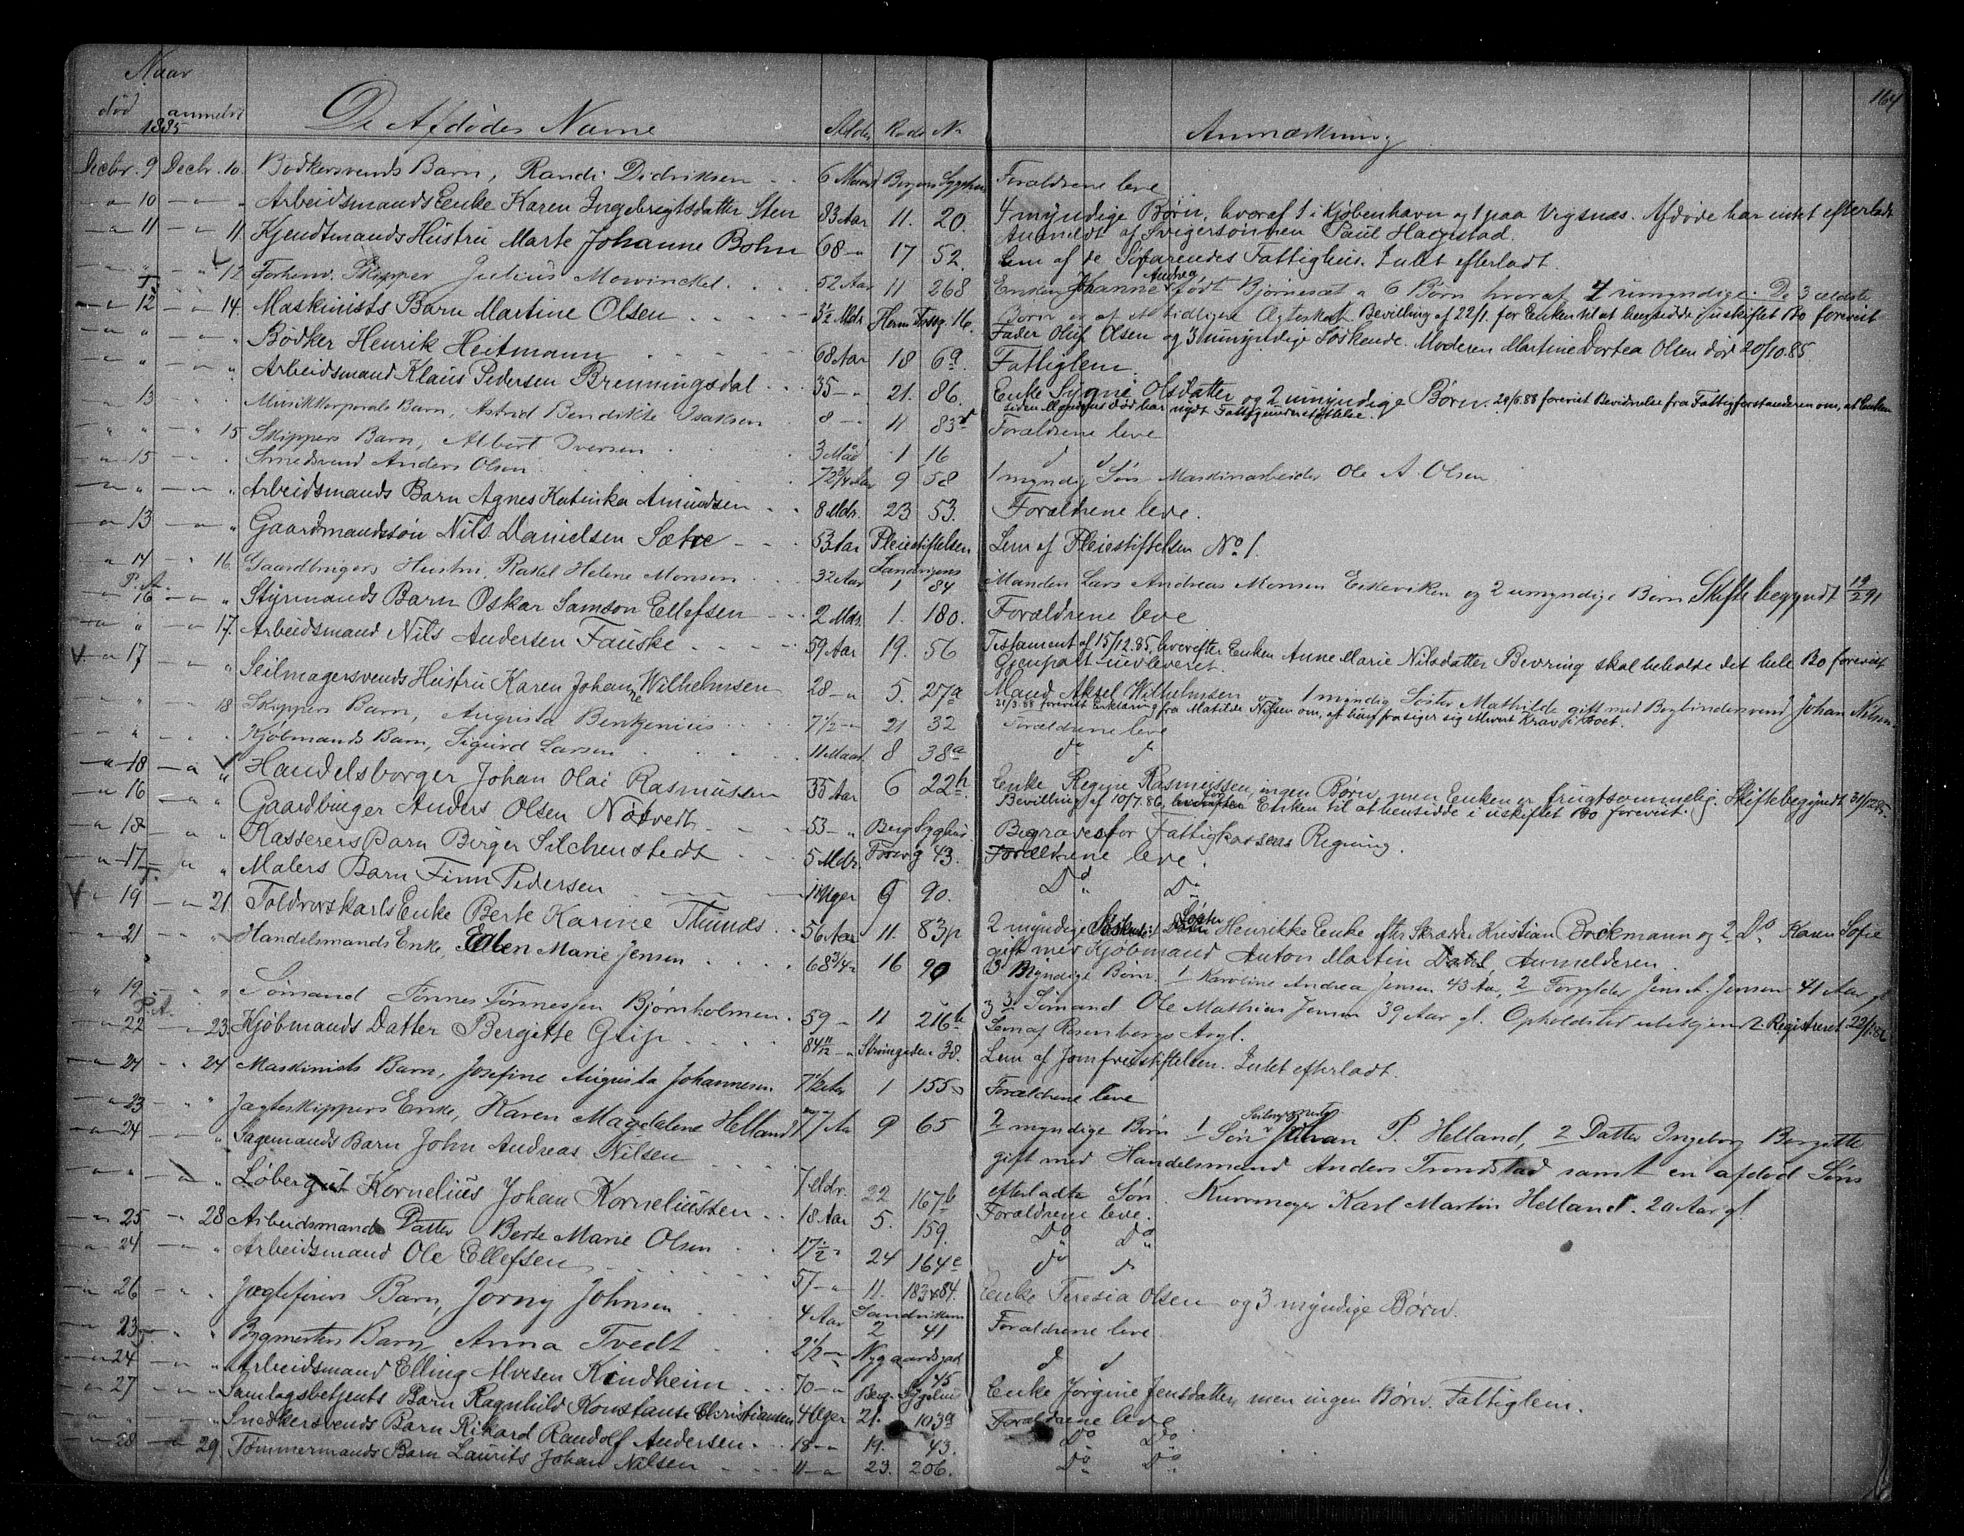 164
Naar
død anmeldt De Afdødes Navne Alder Rode No Anmærkning
1885
Decbr. 9 Decbr. 10. Bødkersvends Barn, Randi Didriksen 6 Maan Bergens Sygehus Forældrene leve
" 10 " Arbeidsmands Enke Karen Ingebrigtsdatter Sten 83 Aar 11. 20. 4 myndige Børn, hvoraf 1 i Kjøbenhavn og 1 paa Vigsnæs. Afdøde har intet efterladt
Anmeldt af Svigersønnen Paul Haegstad.
" 11 " 11. Kjendtmands Hustru Marte Johanne Bohn 68 " 17 52. Lem af de Søfarendes Fattighus. Intet efterladt.
" " 12 Forhenv. Skipper Julius Mowinckel 52 Aar 11 268 Enken Johanne Andrea født Bjørnesæt & 6 Børn hvoraf 4 umyndige. De 3 ældste
Børn er af tidligere Ægteskab Bevilling af 22/1. for Enken til at hensidde i uskiftet Bo forevist
" 12 " 14. Maskinists Barn Martine Olsen 3½ Mdr. Herm Torvg. 16. Fader Oluf Olsen og 3 umyndige Søskende. Moderen Martine Dortea Olsen død 20/10.85.
" " " Bødker Henrik Heitmann 68 Aar 18 6a. Fattiglem.
" " " Arbeidsmand Klaus Pedersen Brenningsdal 35 " 21. 86. Enke Sygne Olsdatter og 2 umyndige Børn. 29/6.88 forevist Bevidnelse fra Fattigforstanderen om, at Enken
siden Mandens død har nydt Fattigunderstøttelse.
" 13 " Musikkorporals Barn, Astrid Bendikte Isaksen 8 " 11 83d Forældrene leve
" " 15 Skippers Barn, Albert Iversen 3 Md 1 16 d d
" 15 " Smedsvend Anders Olsen 72¾ Aar 9 58 1 myndig Søn Maskinarbeider Ole A. Olsen
" " " Arbeidsmands Barn Agnes Katinka Amundsen 8 Mdr. 23 53. Forældrene leve.
" 13 " Gaardmandssøn Nils Danielsen Sætre 53 Aar Pleiestiftelsen Lem af Pleiestiftelsen No 1.
" 14 " 16. Gaardbrugers Hustru, Rakel Helene Monsen 32 Aar Sandvigens 1 84 Manden Lars Andreas Monsen Eskeviken og 2 umyndige Børn Skifte begyndt 19/2 91
P.A.
" 16 " Styrmands Barn Oskar Samson Ellefsen 2 Mdr. 1. 180. Forældrene leve
" " 17. Arbeidsmand Nils Andersen Fauske 59 Aar 19. 56 Testament af 15/12.85, hvorefter Enken Anne Marie Nilsdatter Bevring skal beholde det hele Bo forevist
Gjenpart indleveret.
V " 17 " Seilmagersvends Hustru Karen Johanne Wilhelmsen 28 " 5. 27a Mand Aksel Wilhelmsen og 1 myndig Søster Mathilde gift med Bogbindersvend Johan Nilsen
21/3.88 forevist Erklæring fra Matilde Nilsen om, at hun frasiger sig Arvens Krav i Boet.
" " 18 Skippers Barn, Augusta Bentzenius 7½ " 21 32 Forældrene leve
" " " Kjøbmands Barn, Sigurd Larsen 11 Maan. 8 38a do d
" 18 " Handelsborger Johan Olai Rasmussen 35 Aar 6 22h. Enke Regine Rasmussen, ingen Børn, men Enken er frugtsommelig. Skifte begyndt 31/12 85.
Bevilling af 10/7.86, for Enken til at hensidde i uskiftet Bo forevist.
" 16 " Gaardbruger Anders Olsen Nøtvedt 53 " Berg Sygehus Begraves for Fattigkassens Regning.
" 18 " Kasserers Barn Birger Silchenstedt 5 Mdr. Torvg 43. Forældrene leve.
" 17 " Malers Barn Finn Pedersen 11 Uger 9 90. Do Do
V " 19 " 21. Toldrorskarls Enke Berte Karine Thunes 56 Aar 11. 83p 2 myndige Søskende: 1 Søster Henrikke Enke efter Skrædder Kristian Brekmann og 2 Do Karen Sofie
gift med Kjøbmand Anton Martin Dahl, Anmelderen.
" 21 " Handelsmands Enke, Ellen Marie Jensen 68¾ " 16 90 3 Myndige Børn 1 Karoline Andrea Jensen 43 Aar, 2 Forgylder Jens A. Jensen 41 Aar gl
3 Sømand Ole Mathias Jensen 39 Aar gl. Opholdsted ubekjendt. Registreret 22/1 86.
" 19 " Sømand Tønnes Tønnessen Bjørnholmen 59 " 11 216b Lem af Rosenbergs Asyl.
P.A.
" 22 " 23. Kjøbmands Datter Bergitte Grip 84 11/12 " Strangaden 38. Lem af Jomfrustiftelsen. Intet efterladt.
" 24 " 24 Maskinists Barn, Josefine Augusta Johannesen 7½ Aar 1 155 Forældrene leve
" 23 " Jagteskippers Enke, Karen Magdalene Helland 77 Aar 9 65 2 myndige Børn 1 Søn Johan P. Helland, 2 Datter Ingeborg Bergitte
gift med Handelsmand Anders Trondstad samt en afdød Søns
efterladte Søn. Kurvmager Karl Martin Helland. 20 Aar gl.
" 24 " Sagemands Barn John Andreas Nilsen 7 Mdr. 22 167b Forældrene leve.
" " " Løbergut Kornelius Johan Korneliussen 18 Aar 5. 159. Do Do
" 25 " 28 Arbeidsmands Datter Berte Marie Olsen 17½ " 24 164c do d
" 24 " Arbeidsmand Ole Ellefsen 57 " 11. 183 & 84. Enke Teresia Olsen og 3 myndige Børn.
" 26 " Jægteførers Barn, Jorny Johnsen 4 Aar Sandviken 2 41 Forældrene leve.
" 23 " Bygmesters Barn, Anna Tvedt 2½ " Nygaardsgad 45 d d
" 24 " Arbeidsmand Elling Alvesen Kindheim 70 " Berg. Sygehus Enke Jørgine Jensdatter, men ingen Børn. Fattiglem.
" 27 " Samlagsbetjents Barn Ragnhild Konstanse Christiansen 4 Uger 21. 103a Forældrene leve
" " " Snedkersvends Barn Rikard Randolf Andersen 18 " 19. 43. Do Do
" 28 " 29. Tømmermands Barn Laurits Johan Nilsen 11 " 23. 206. Do Do